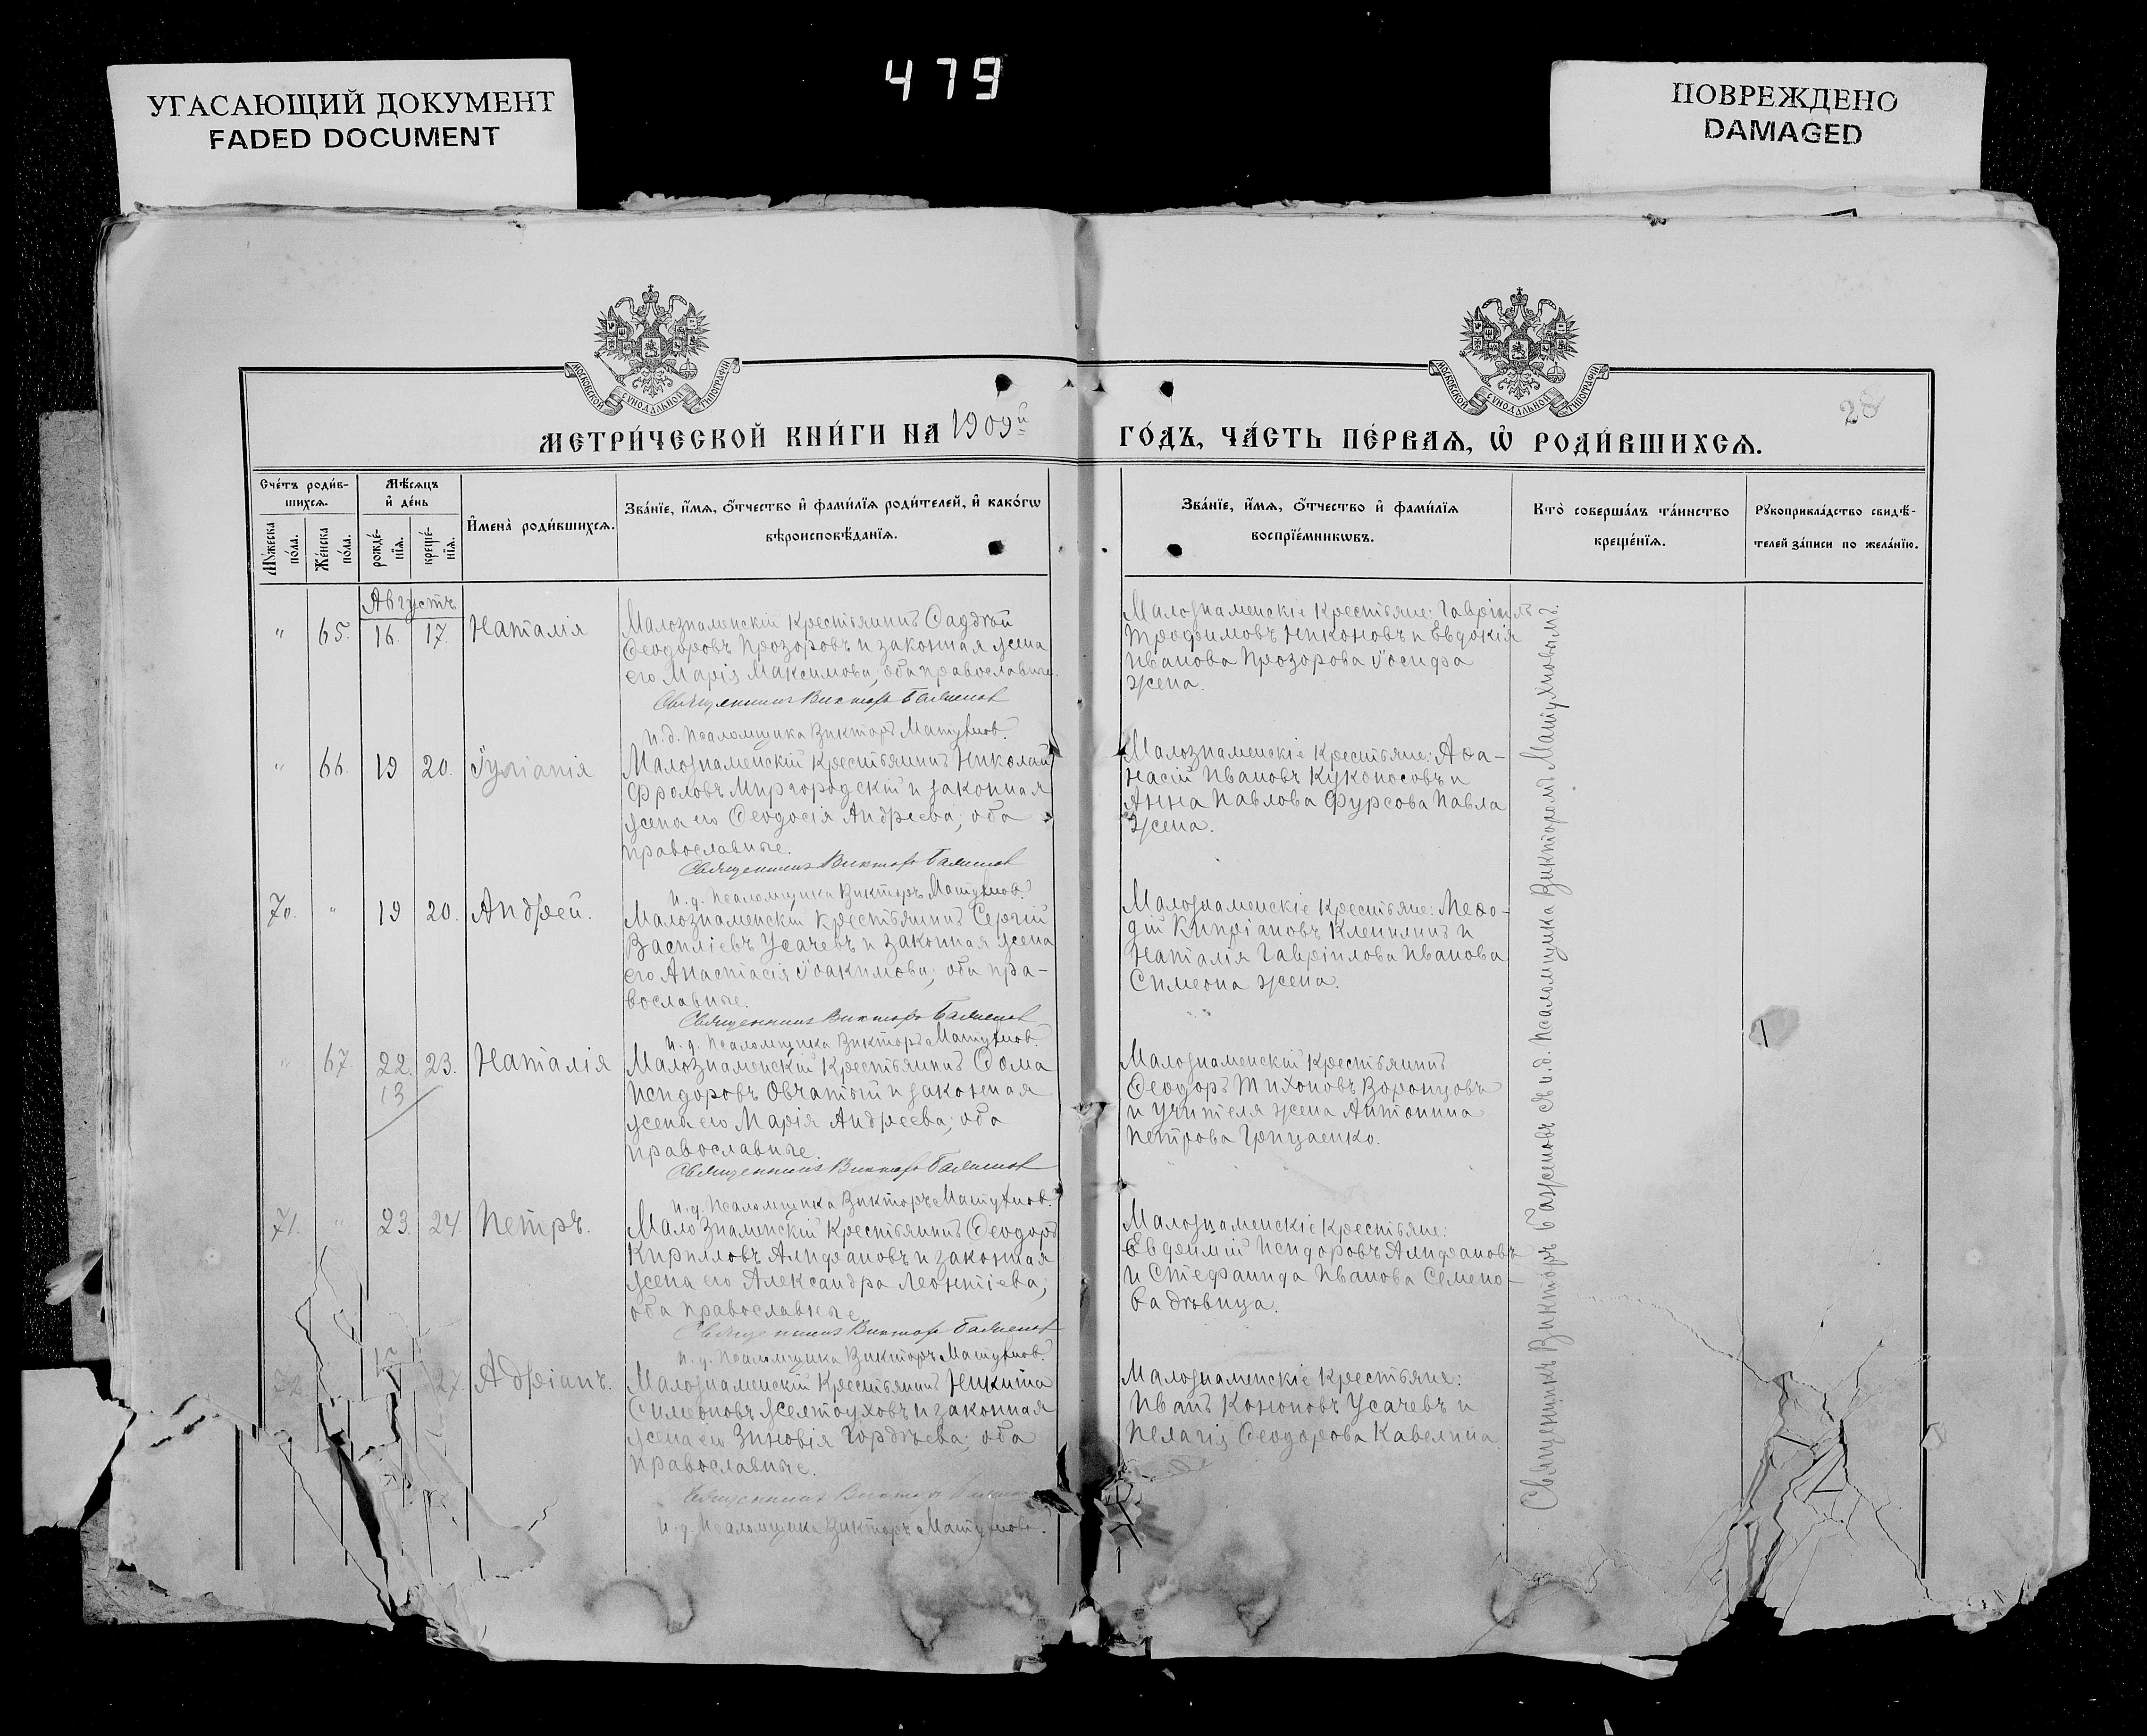 479
УГАСАЮЩИЙ ДОКУМЕНТ
FADED DOCUMENT
ПОВРЕЖДЕНО
DAMAGED
МОСКОВСКОЙ СУНОДАЛЬНОЙ ТИПОГРАФІИ
МОСКОВСКОЙ СУНОДАЛЬНОЙ ТИПОГРАФІИ
28
МЕТРИ́ЧЕСКОЙ КНИ́ГИ НА 1909й ГО́ДЪ, ЧА́СТЬ ПЕ́РВАѦ, Ѡ҆ РОДИ́ВШИХСѦ.
Сче́тъ роди́в-
шихсѧ.
Мѣ́сѧцъ
и҆ де́нь
Мꙋ́жеска
по́ла.
Же́нска
по́ла.
рожде́-
нїѧ.
креще́-
нїѧ.
И҆мена̀ роди́вшихсѧ.
Зва́нїе, и҆́мѧ, ѻ҆́тчество и҆ фами́лїѧ роди́телей, и҆ како́гѡ
вѣроисповѣ́данїѧ.
Зва́нїе, и҆́мѧ, ѻ҆́тчество и҆ фами́лїѧ
воспрїе́мникѡвъ.
Кто̀ соверша́лъ та́инство
креще́нїѧ.
Рꙋкоприкла́дство свидѣ́-
телей за́писи по жела́нїю.
Августъ
" 65. 16. 17. Наталія
Малознаменскій крестьянинъ Фаддѣй
Ѳеодоровъ Прозоровъ и законная жена
его Марія Максимова; оба православные.
Священникъ Викторъ Баженов
и.д. Псаломщика Викторъ Матухнов.
Малознаменскіе крестьяне: Гавріилъ
Трофимовъ Никоновъ и Евдокія
Иванова Прозорова Іосифа
жена.
" 66. 19 20. Іуліанія
Малознаменскій крестьянинъ Николай
Фроловъ Миргородскій и законная
жена его Ѳеодосія Андреева; оба
православные.
Священникъ Викторъ Баженов
и.д. Псаломщика Викторъ Матухнов.
Малознаменскіе крестьяне: Аѳа-
насій Ивановъ Куконосовъ и
Анна Павлова Фурсова Павла
жена.
70. " 19 20. Андрей.
Малознаменскій крестьянинъ Сергій
Василіевъ Усачевъ и законная жена
его Анастасія Іоакимова; оба пра-
вославные.
Священникъ Викторъ Баженов
и.д. Псаломщика Викторъ Матухнов.
Малознаменскіе крестьяне: Меѳо-
дій Кипріановъ Кленинъ и
Наталія Гавріилова Иванова
Симеона жена.
" 67 22. 23. Наталія
13
Малознаменскій крестьянинъ Ѳома
Исидоровъ Овчатый и законная
жена его Марія Андреева; оба
православные.
Священникъ Викторъ Баженов
и.д. Псаломщика Викторъ Матухнов.
Малознаменскій крестьянинъ
Ѳеодоръ Тихоновъ Воронцовъ
и учителя жена Антонина
Петрова Грицаенко.
71. " 23. 24 Петръ.
Малознаменскій крестьянинъ Ѳеодоръ
Кирилловъ Алифановъ и законная
жена его Александра Леонтіева;
оба православные
Священникъ Викторъ Баженов
и.д. Псаломщика Викторъ Матухнов.
Малознаменскіе крестьяне:
Евфимій Исидоровъ Алифановъ
и Стефанида Иванова Семено-
ва дѣвица.
72. 27. Адріанъ.
Малознаменскій крестьянинъ Никита
Симеоновъ Желтоуховъ и законная
жена его Зиновія Гордѣева; оба
православные.
Священникъ Викторъ
и.д. Псаломщика Викторъ Матухновъ.
Малознаменскіе крестьяне:
Иванъ Кононовъ Усачевъ и
Пелагія Ѳеодорова Кавелина
Священникъ Викторъ Баженовъ съ и.д. Псаломщика Викторомъ Матухновымъ.